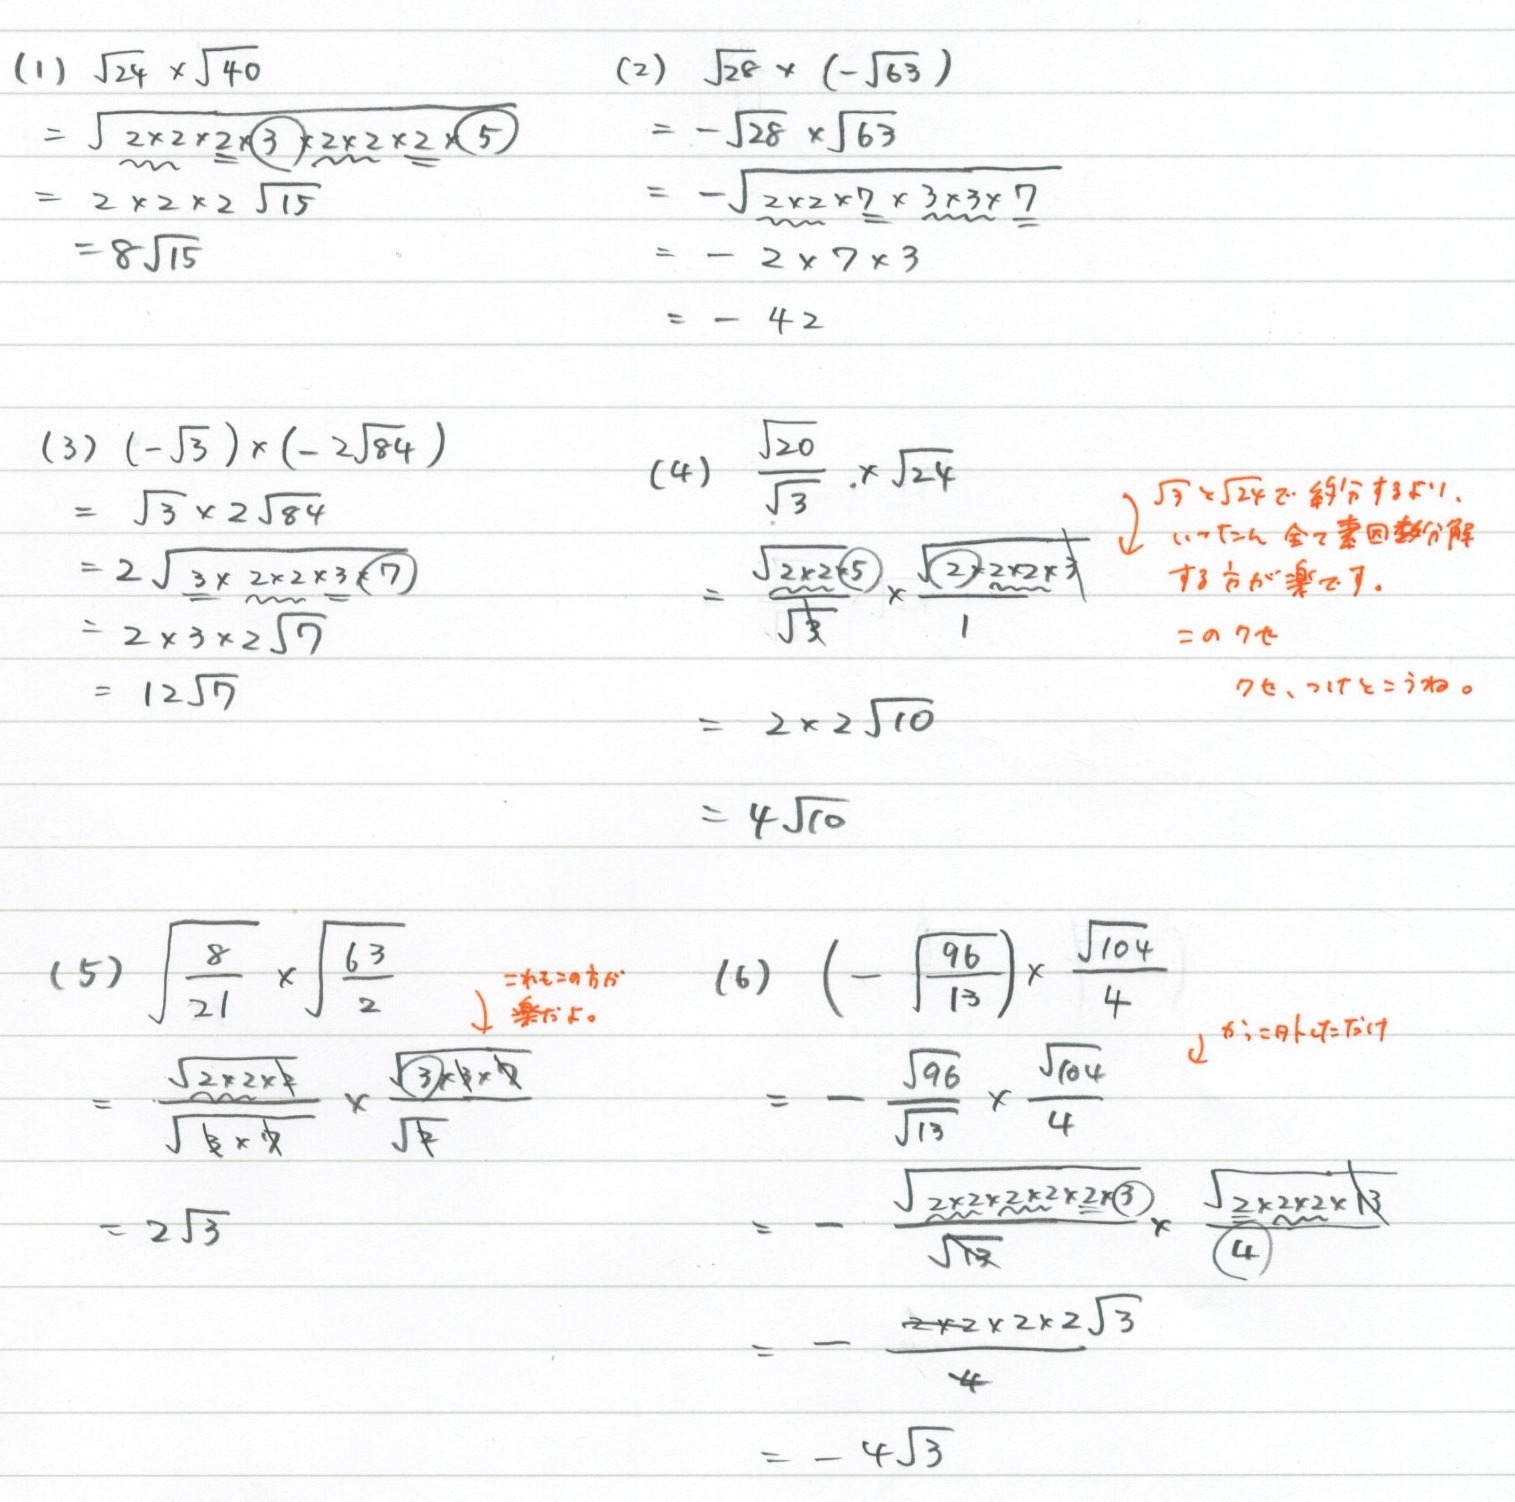 (1) √24 × √40
= √(2×2×2×3×2×2×2×5)
= 2×2×2√15
= 8√15
(2) √28 × (-√63)
= -√28 × √63
= -√(2×2×7×3×3×7)
= - 2×7×3
= - 42
(3) (-√3)×(-2√84)
= √3 × 2√84
= 2√(3×2×2×3×7)
= 2×3×2√7
= 12√7
(4) √20/√3 × √24
= √(2×2×5)/√3 × √(2×2×2×3)/1
= 2×2√10
= 4√10
√3と√24で約分するより、
いったん全て素因数分解
する方が楽です。
このクセ
クセ、つけとこうね。
(5) √(8/21) × √(63/2)
= √(2×2×2)/√(3×7) × √(3×3×7)/√2
= 2√3
これもこの方が
楽だよ。
(6) (-√(96/13)) × √104/4
= - √96/√13 × √104/4
= - √(2×2×2×2×2×3)/√13 × √(2×2×2×13)/4
= - 2×2×2×2√3/4
= - 4√3
かっこ外しただけ